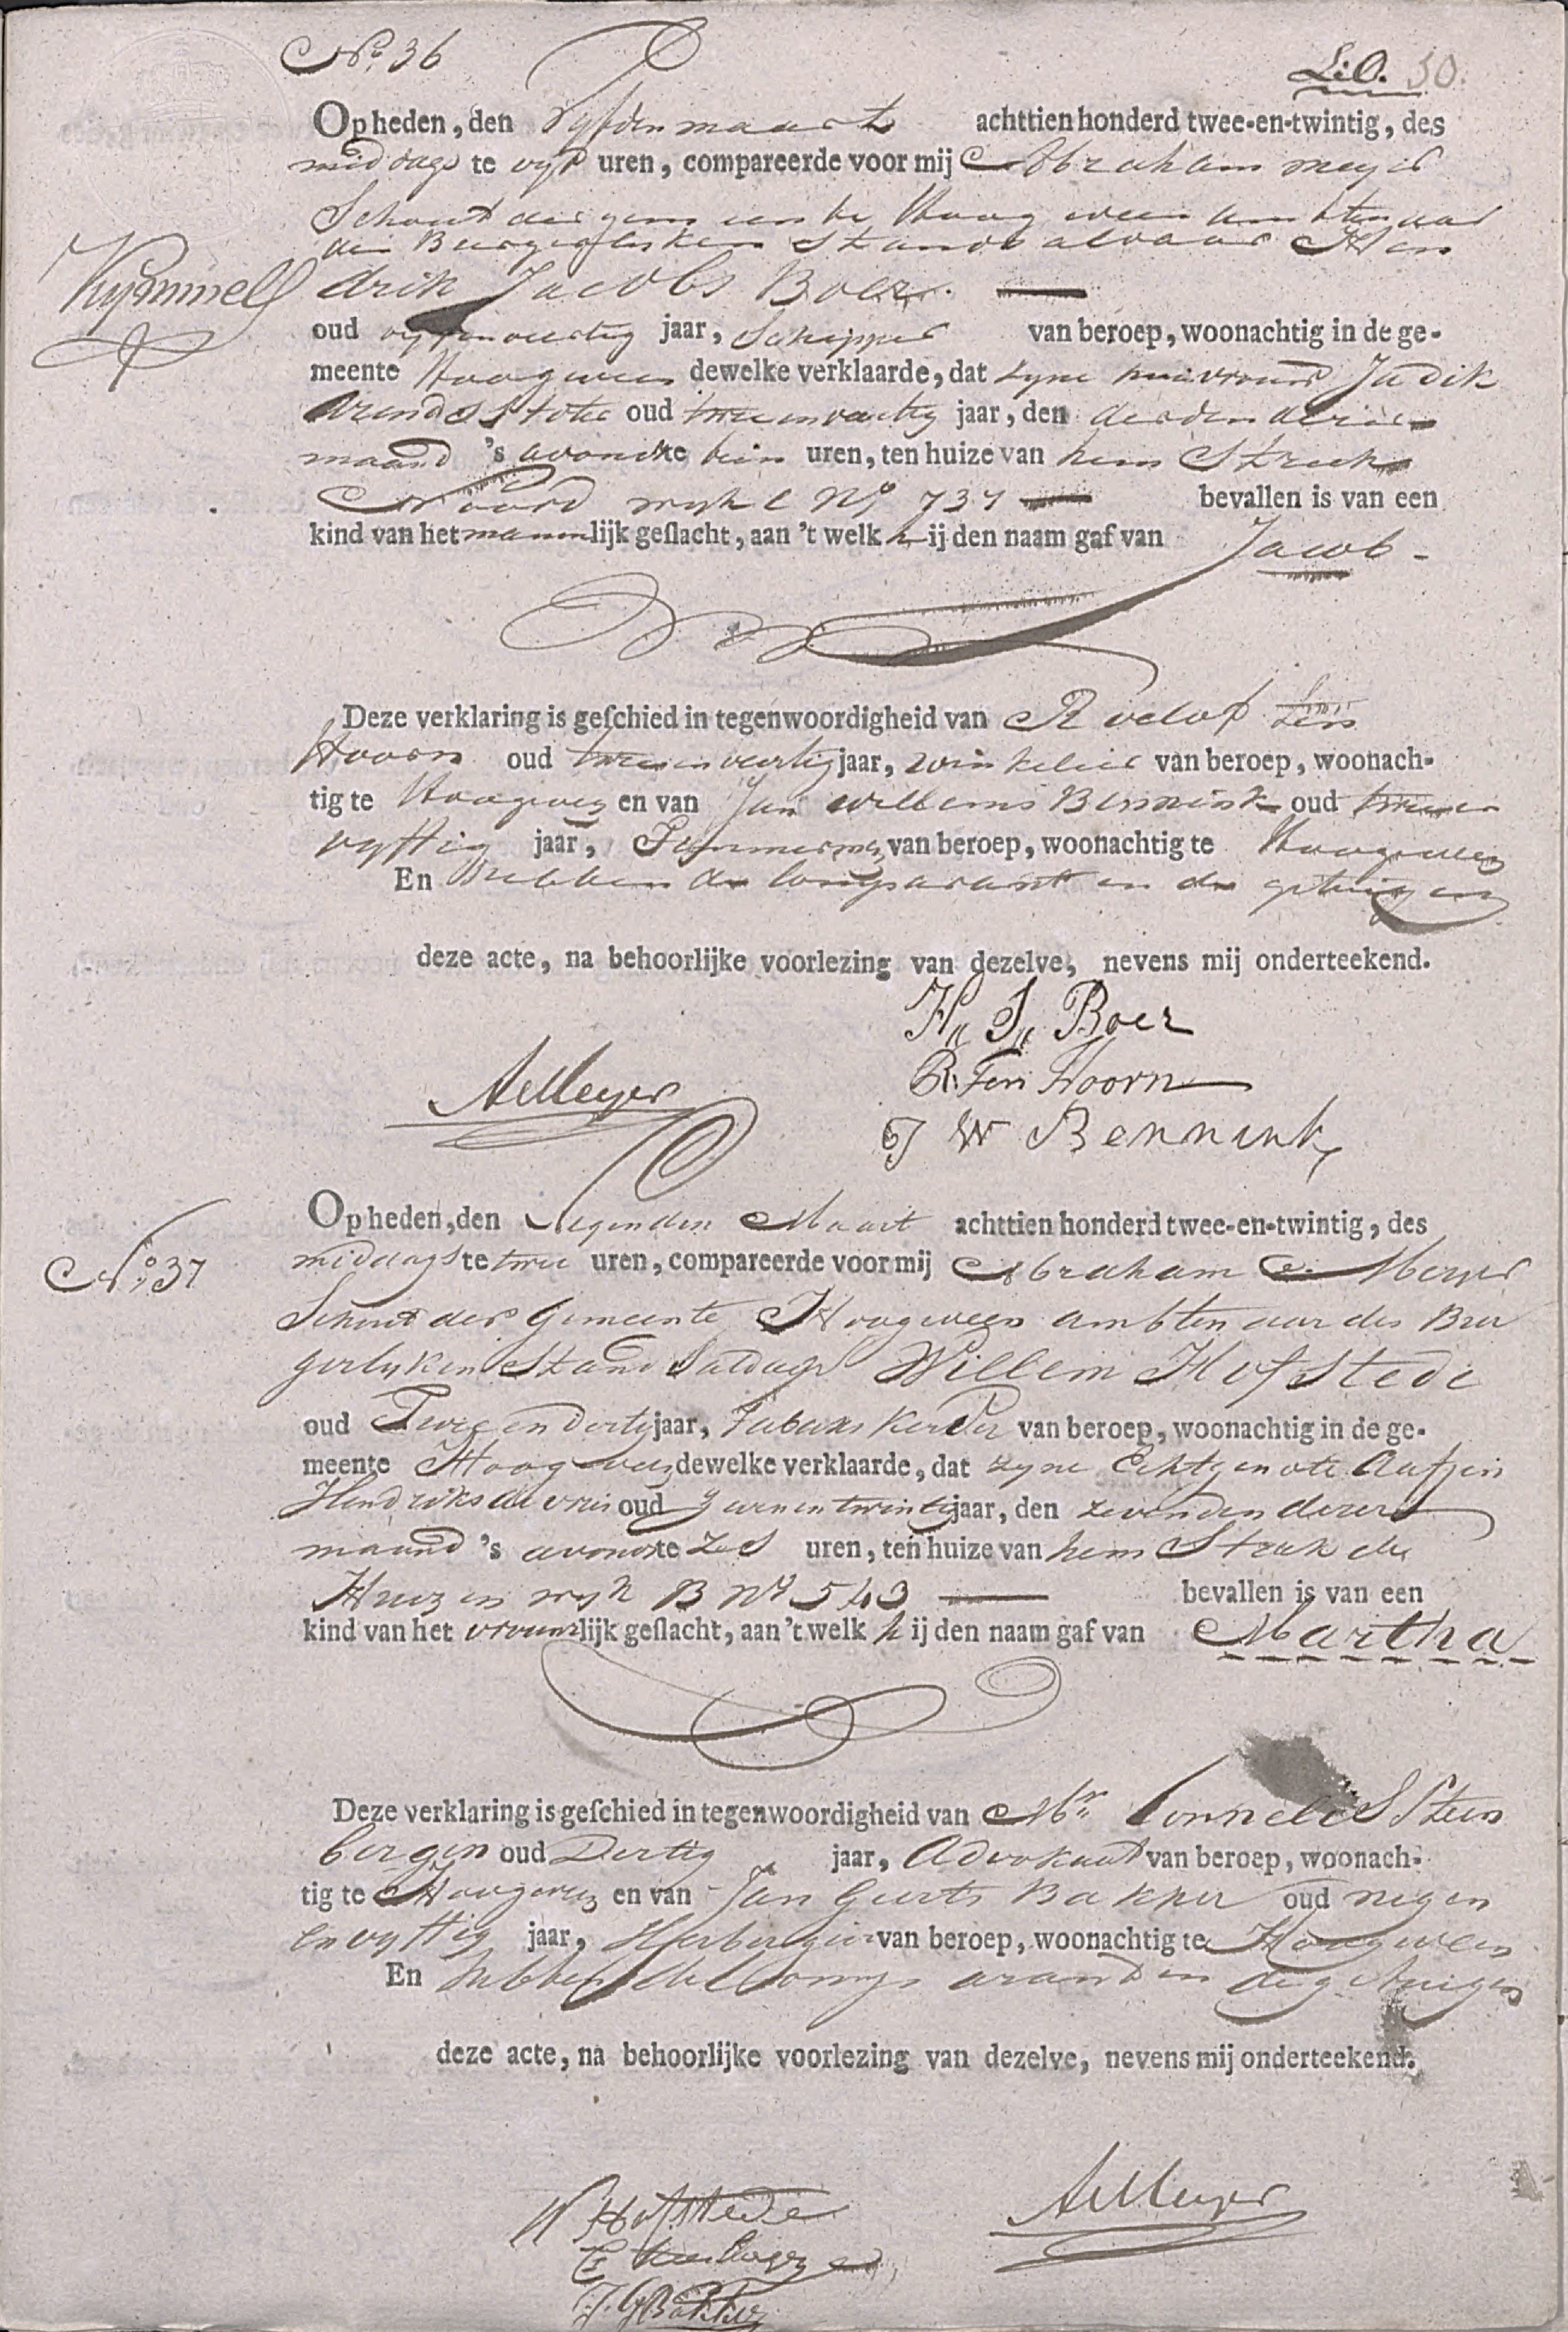 No. 36
L: O. 30.
Op heden, den Vyfden maart achttien honderd twee-en-twintig, des
middags te vyf uren, compareerde voor mij Abraham meyer
Schout der gemeente Hoogeveen ambtenaar
der Burgerlyken Stands aldaar Hen
Kymmell
drik Jacobs Boer.
oud vyfenveertig jaar, Schipper van beroep, woonachtig in de ge-
meente Hoogeveen dewelke verklaarde, dat zyne huisvrouw Judik
Arends Stoter oud tweeenveertig jaar, den derden dezer
maand 's avonds te tien uren, ten huize van hem Streek
Noord wyk C No 737 bevallen is van een
kind van het mannlijk geſlacht, aan 't welk hij den naam gaf van Jacob -
Deze verklaring is geſchied in tegenwoordigheid van Roelof Ten
Hoorn oud tweeenveertig jaar, winkelier van beroep, woonach-
tig te Hoogeveen en van Jan Willems Bennink oud tweeen
vyftig jaar, Timmerman van beroep, woonachtig te Hoogeveen
En hebben de Comparant en de getuigen
deze acte, na behoorlijke voorlezing van dezelve, nevens mij onderteekend.
H,, J,, Boer
A Meyer
R. Ten Hoorn
J W Bennink
Op heden, den Negenden Maart achttien honderd twee-en-twintig, des
No. 37
middags te twee uren, compareerde voor mij Abraham Meyer
Schout der Gemeente Hoogeveen ambtenaar des Bur
gerlyken Stand aldaar Willem Hofstede
oud Twee en dertig jaar, Tabaks Kerver van beroep, woonachtig in de ge-
meente Hoogeveen dewelke verklaarde, dat zyne Echtgenote Aaltjen
Hendriks de vries oud zeven en twintig jaar, den zevenden dezer
maand 's avonds te zes uren, ten huize van hem Streek de
Huizen wyk B No 543 bevallen is van een
kind van het vrouwlijk geſlacht, aan 't welk hij den naam gaf van Martha
Deze verklaring is geſchied in tegenwoordigheid van Mr. Cornelis Steen
bergen oud Dertig jaar, Advokaat van beroep, woonach-
tig te Hoogeveen en van Jan Geerts Bakker oud negen
en vyftig jaar, Herbergier van beroep, woonachtig te Hoogeveen
En hebben de Comparant en de getuigen
deze acte, na behoorlijke voorlezing van dezelve, nevens mij onderteekend.
W Hofstede
A Meyer
J. G Bakker